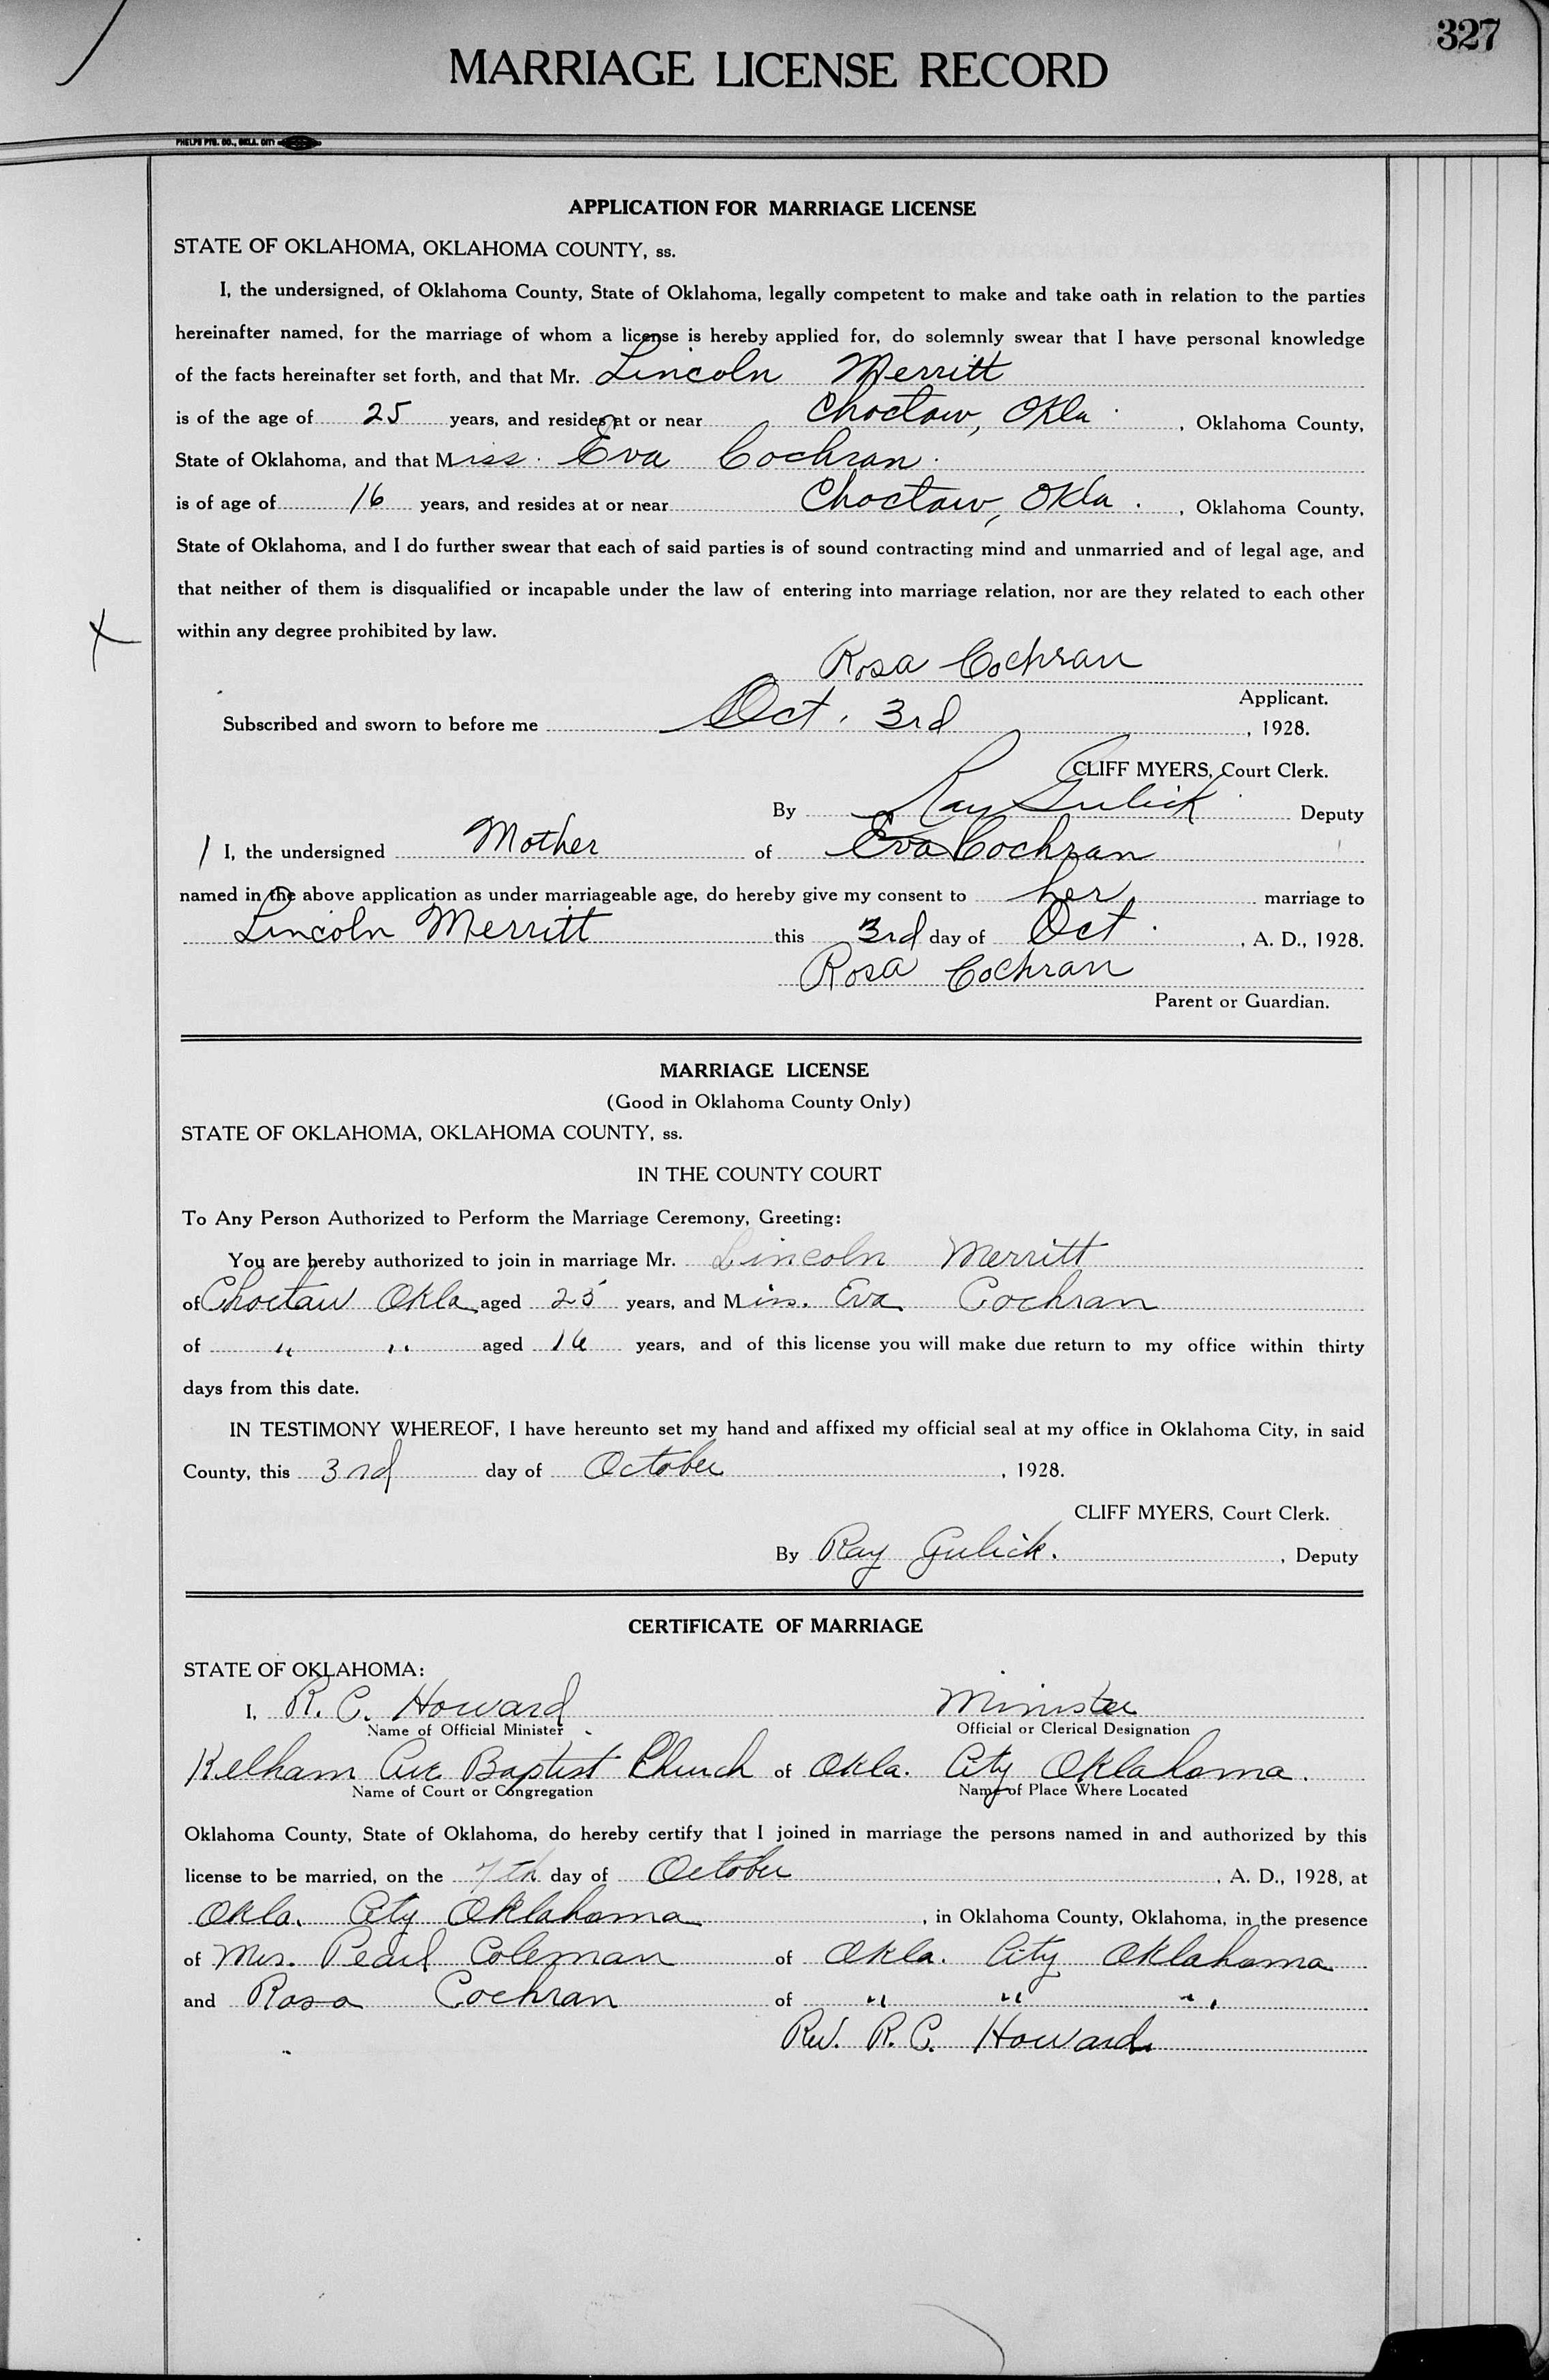 327
MARRIAGE LICENSE RECORD
PHELPS PTG. CO., OKLA. CITY
APPLICATION FOR MARRIAGE LICENSE
STATE OF OKLAHOMA, OKLAHOMA COUNTY, ss.
I, the undersigned, of Oklahoma County, State of Oklahoma, legally competent to make and take oath in relation to the parties
hereinafter named, for the marriage of whom a license is hereby applied for, do solemnly swear that I have personal knowledge
of the facts hereinafter set forth, and that Mr. Lincoln Merritt
is of the age of 25 years, and resides at or near Choctaw, Okla. , Oklahoma County,
State of Oklahoma, and that Miss. Eva Cochran.
is of age of 16 years, and resides at or near Choctaw, Okla. , Oklahoma County,
State of Oklahoma, and I do further swear that each of said parties is of sound contracting mind and unmarried and of legal age, and
that neither of them is disqualified or incapable under the law of entering into marriage relation, nor are they related to each other
within any degree prohibited by law.
X
Rosa Cochran
Applicant.
Subscribed and sworn to before me Oct. 3rd , 1928.
CLIFF MYERS, Court Clerk.
By Ray Gulick Deputy
I, the undersigned Mother of Eva Cochran
named in the above application as under marriageable age, do hereby give my consent to her marriage to
Lincoln Merritt this 3rd day of Oct. , A. D., 1928.
Rosa Cochran
Parent or Guardian.
MARRIAGE LICENSE
(Good in Oklahoma County Only)
STATE OF OKLAHOMA, OKLAHOMA COUNTY, ss.
IN THE COUNTY COURT
To Any Person Authorized to Perform the Marriage Ceremony, Greeting:
You are hereby authorized to join in marriage Mr. Lincoln Merritt
of Choctaw Okla. aged 25 years, and Miss. Eva Cochran
of " " aged 16 years, and of this license you will make due return to my office within thirty
days from this date.
IN TESTIMONY WHEREOF, I have hereunto set my hand and affixed my official seal at my office in Oklahoma City, in said
County, this 3rd day of October , 1928.
CLIFF MYERS, Court Clerk.
By Ray Gulick. , Deputy
CERTIFICATE OF MARRIAGE
STATE OF OKLAHOMA:
I, R. C. Howard Minister
Name of Official Minister Official or Clerical Designation
Kelham Ave Baptist Church of Okla. City Oklahoma.
Name of Court or Congregation Name of Place Where Located
Oklahoma County, State of Oklahoma, do hereby certify that I joined in marriage the persons named in and authorized by this
license to be married, on the 7th day of October , A. D., 1928, at
Okla. City Oklahoma , in Oklahoma County, Oklahoma, in the presence
of Mrs. Pearl Coleman of Okla. City Oklahoma
and Rosa Cochran of " " "
Rev. R. C. Howard